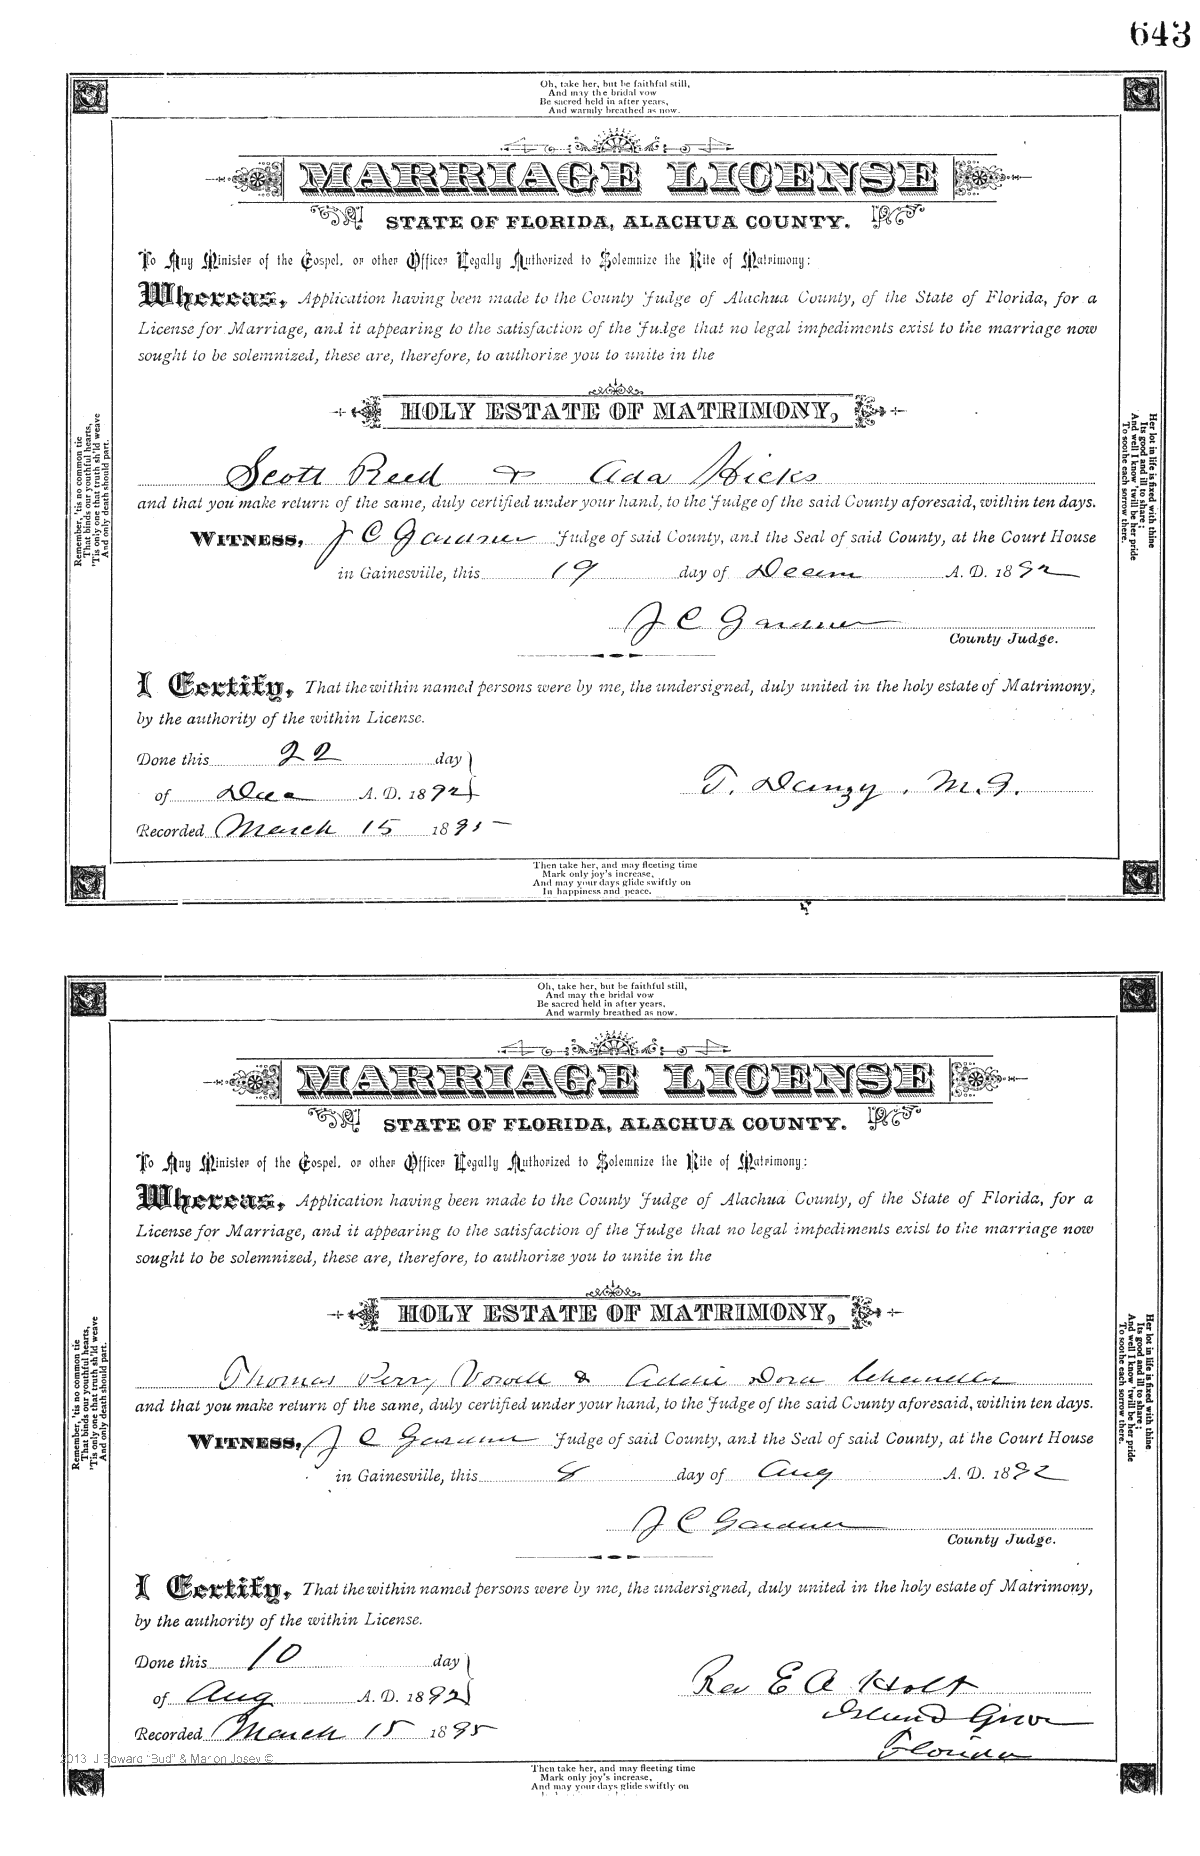 643
Oh, take her, but be faithful still,
And may the bridal vow
Be sacred held in after years,
And warmly breathed as now.
MARRIAGE LICENSE
STATE OF FLORIDA, ALACHUA COUNTY.
To Any Minister of the Gospel, or other Officer Legally Authorized to Solemnize the Rite of Matrimony:
Whereas, Application having been made to the County Judge of Alachua County, of the State of Florida, for a
License for Marriage, and it appearing to the satisfaction of the Judge that no legal impediments exist to the marriage now
sought to be solemnized, these are, therefore, to authorize you to unite in the
HOLY ESTATE OF MATRIMONY,
Scott Reed & Ada Hicks
and that you make return of the same, duly certified under your hand, to the Judge of the said County aforesaid, within ten days.
WITNESS, J C Gardner Judge of said County, and the Seal of said County, at the Court House
in Gainesville, this 19 day of Decem A. D. 1892
J C Gardner
County Judge.
I Certify, That the within named persons were by me, the undersigned, duly united in the holy estate of Matrimony,
by the authority of the within License.
Done this 22 day
of Dec A. D. 1892
T. Danzy, M. G.
Recorded March 15 1895
Remember, 'tis no common tie
That binds our youthful hearts,
'Tis only one that truth sh'ld weave
And only death should part.
Her lot in life is fixed with thine
Its good and ill to share;
And well I know 'twill be her pride
To soothe each sorrow there.
Then take her, and may fleeting time
Mark only joy's increase,
And may your days glide swiftly on
In happiness and peace.
Oh, take her, but be faithful still,
And may the bridal vow
Be sacred held in after years,
And warmly breathed as now.
MARRIAGE LICENSE
STATE OF FLORIDA, ALACHUA COUNTY.
To Any Minister of the Gospel, or other Officer Legally Authorized to Solemnize the Rite of Matrimony:
Whereas, Application having been made to the County Judge of Alachua County, of the State of Florida, for a
License for Marriage, and it appearing to the satisfaction of the Judge that no legal impediments exist to the marriage now
sought to be solemnized, these are, therefore, to authorize you to unite in the
HOLY ESTATE OF MATRIMONY,
Thomas Perry Vowell & Addie Dora Chandler
and that you make return of the same, duly certified under your hand, to the Judge of the said County aforesaid, within ten days.
WITNESS, J C Gardner Judge of said County, and the Seal of said County, at the Court House
in Gainesville, this 8 day of Aug A. D. 1892
J C Gardner
County Judge.
I Certify, That the within named persons were by me, the undersigned, duly united in the holy estate of Matrimony,
by the authority of the within License.
Done this 10 day
of Aug A. D. 1892
Rev E A Holt
Island Grove
Florida
Recorded March 15 1895
Remember, 'tis no common tie
That binds our youthful hearts,
'Tis only one that truth sh'ld weave
And only death should part.
Her lot in life is fixed with thine
Its good and ill to share;
And well I know 'twill be her pride
To soothe each sorrow there.
2013 J Edward "Bud" & Marion Josey ©
Then take her, and may fleeting time
Mark only joy's increase,
And may your days glide swiftly on